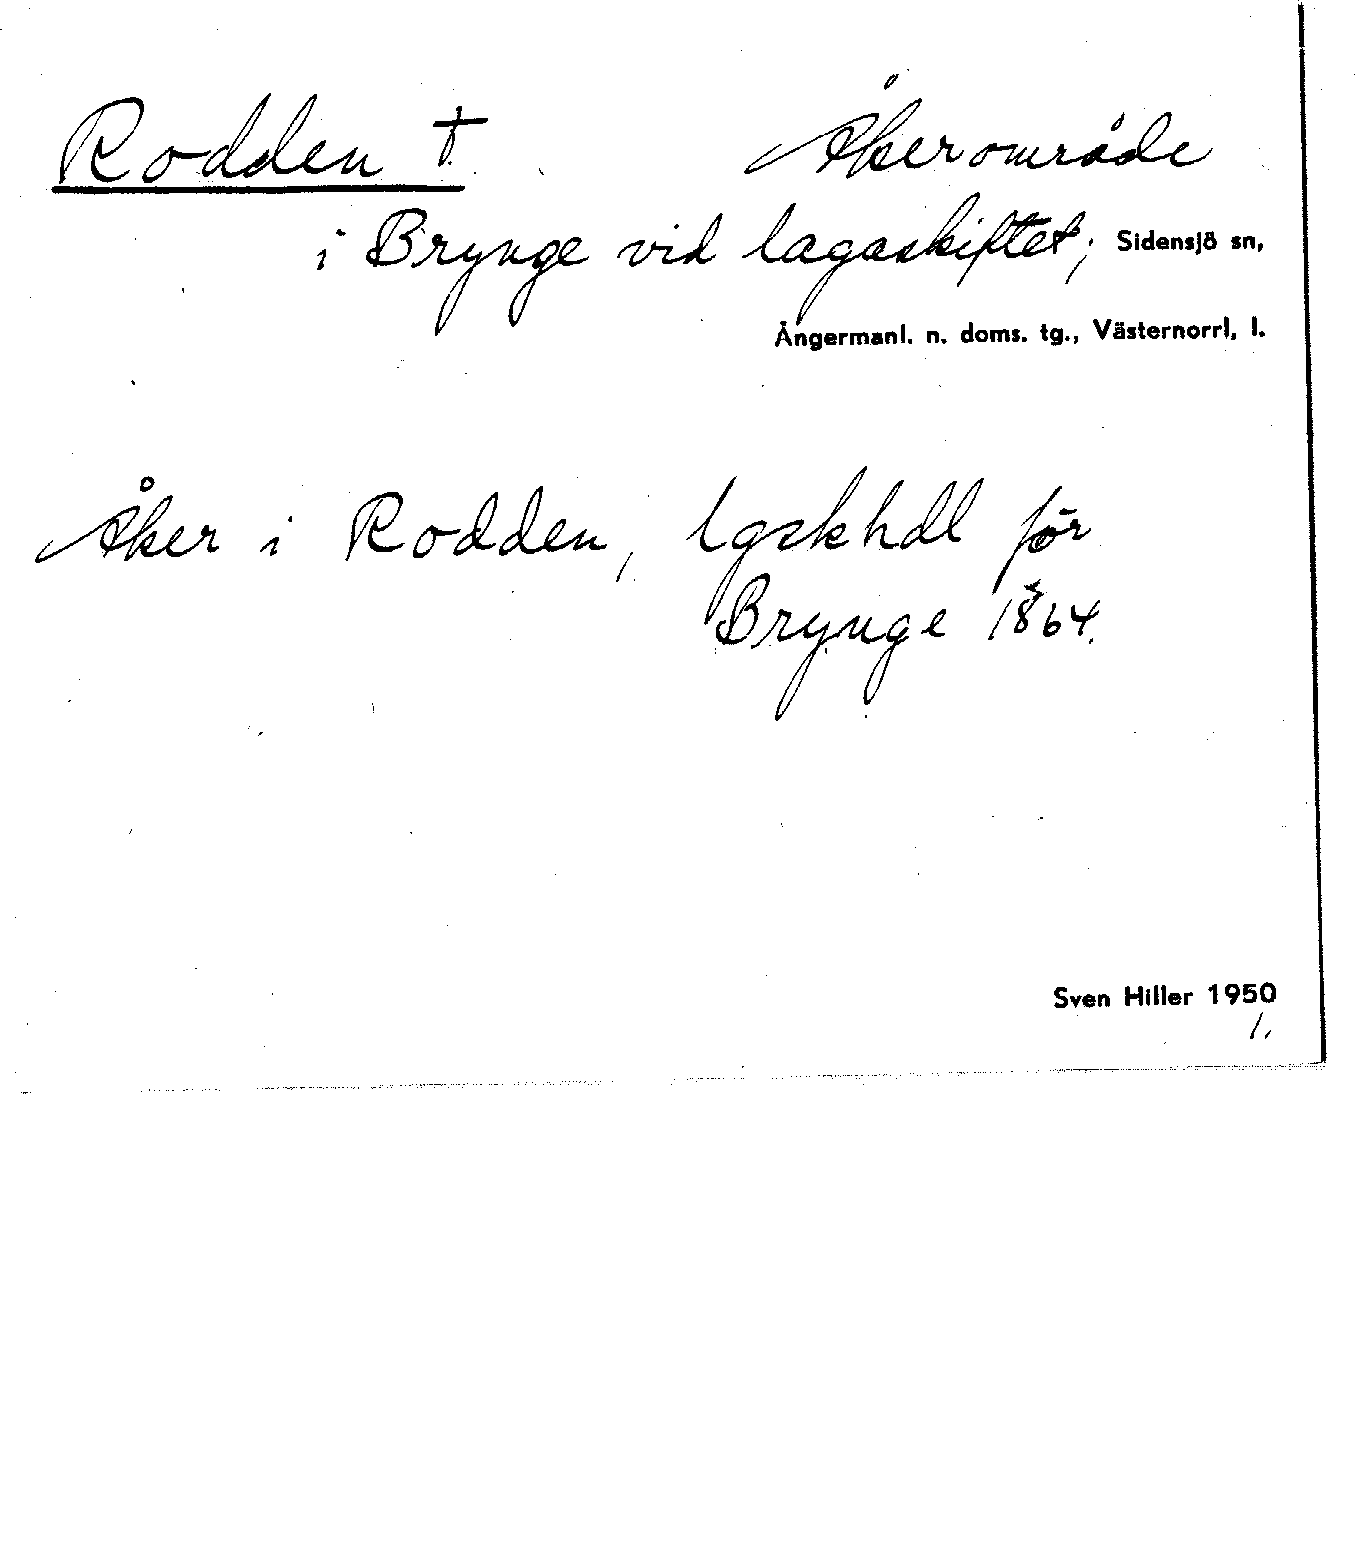 Rodden † Åkerområde
i Brynge vid lagaskiftet; Sidensjö sn,
Ångermanl. n. doms. tg., Västernorrl. l.
Åker i Rodden, lgskhdl för
Brynge 1864.
Sven Hiller 1950
1.